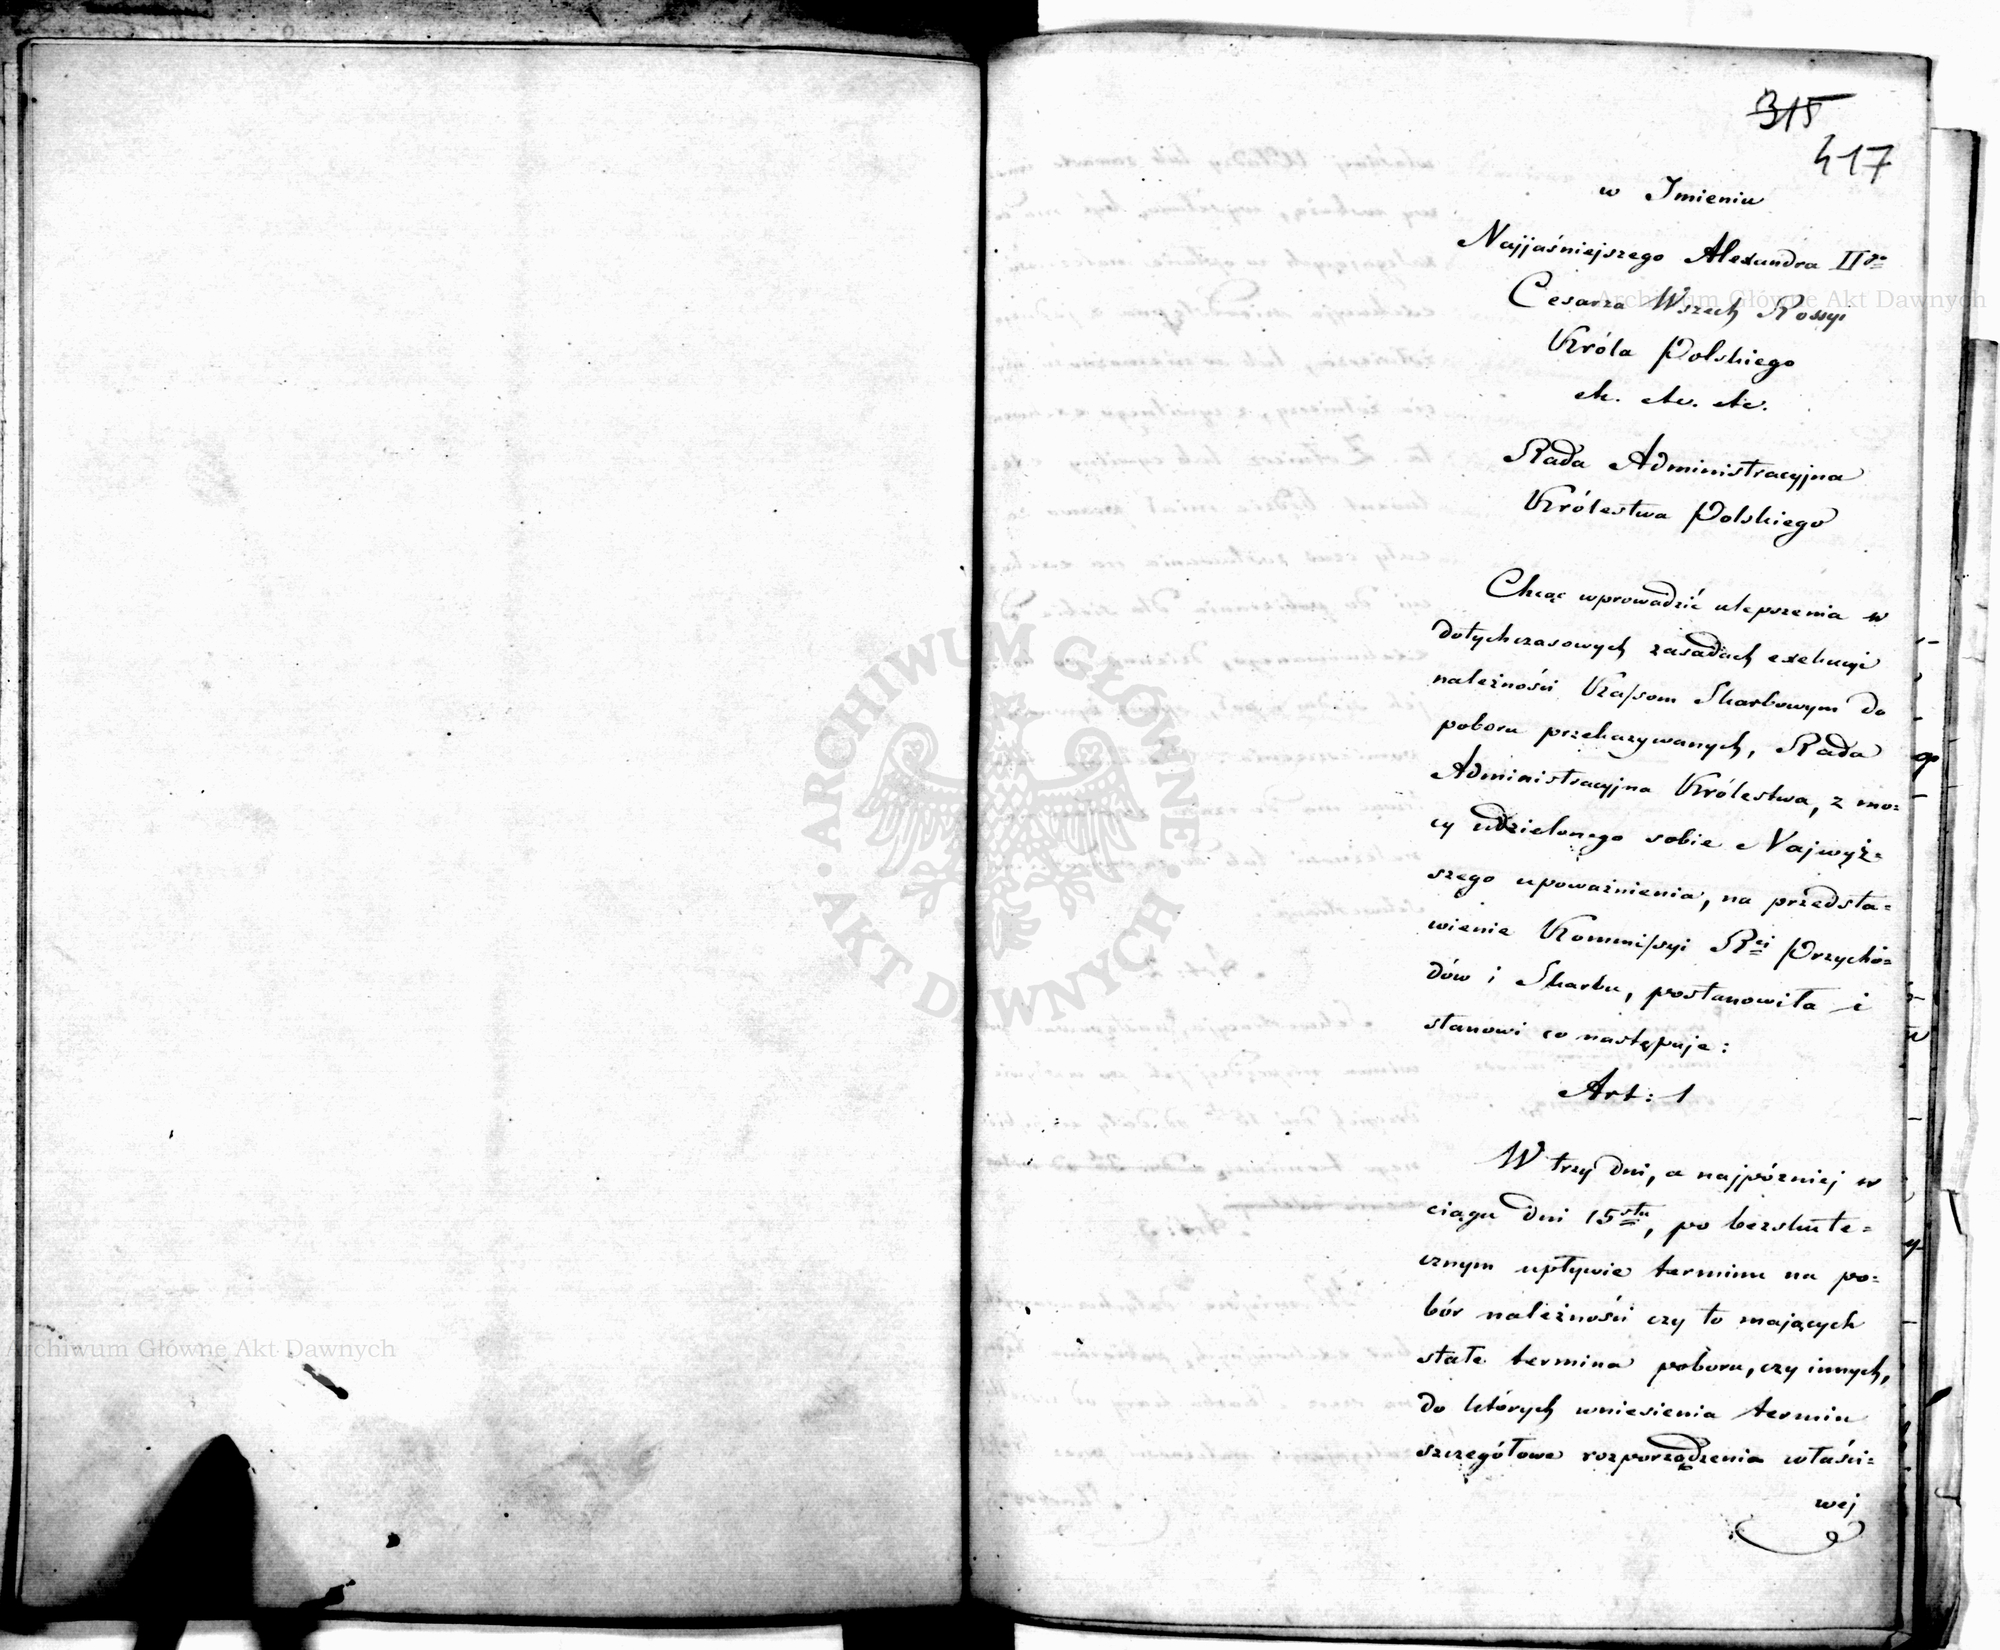 315
417
w Imieniu
Najjaśniejszego Alexandra IIgo
Cesarza Wszech Rossyi
Króla Polskiego
etc. etc. etc.
Rada Administracyjna
Królestwa Polskiego
Chcąc wprowadzić ulepszenia w
dotychczasowych zasadach exekucyi
należności Kassom Skarbowym do
poboru przekazywanych, Rada
Administracyjna Królestwa, z mo=
cy udzielonego sobie Najwyż=
szego upoważnienia, na przedsta=
wienie Kommissyi Rei Przycho=
dów i Skarbu, postanowiła i
stanowi co następuje:
Art: 1
W trzy dni, a najpóźniej w
ciągu dni 15stu, po bezskute=
cznym upływie terminu na po=
bór należności czy to mających
stałe termina poboru, czy innych,
do których wniesienia termin
szczegółowe rozporządzenia właści=
wej
ARCHIWUM GŁÓWNE AKT DAWNYCH
Archiwum Główne Akt Dawnych
Archiwum Główne Akt Dawnych